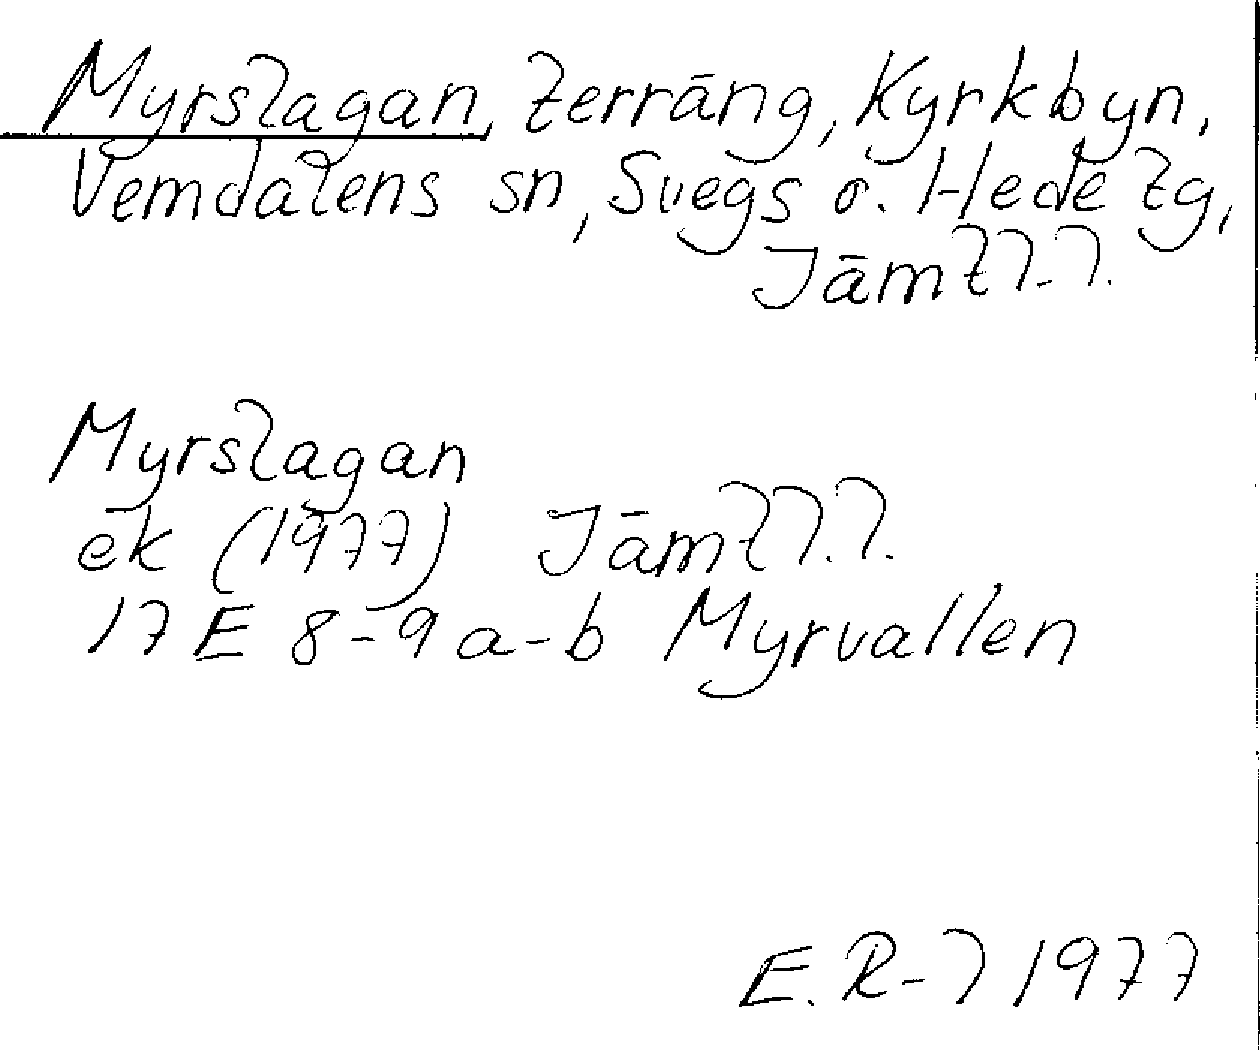 Myrslagan, terräng, Kyrkbyn,
Vemdalens sn, Svegs o. Hede tg,
Jämtl.l.
Myrslagan
ek (1977) Jämtl.l.
17 E 8-9 a-b Myrvallen
E. R-l 1977